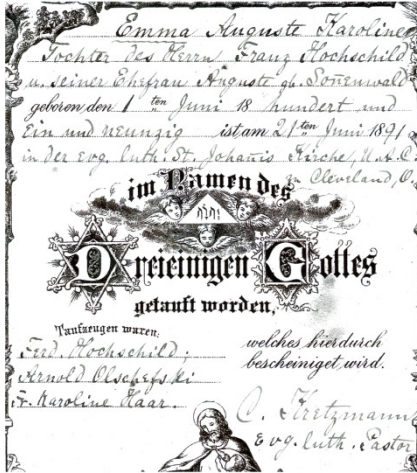 Emma Auguste Karoline
Tochter des Herrn Franz Hochschild
u. seiner Ehefrau Auguste gb. Sonnenwald
geboren den 1 ten Juni 18 hundert und
Ein und neunzig ist am 21 ten Juni 1891
in der evg. luth. St. Johanis Kirche, U.A.C.
zu Cleveland, O.
im Namen des
יהוה
Dreieinigen Gottes
getauft worden,
Taufzeugen waren:
Ferd. Hochschild;
Arnold Olschefski
Fr. Karoline Haar.
welches hierdurch
bescheiniget wird.
C. Kretzmann
Evg. luth. Pastor